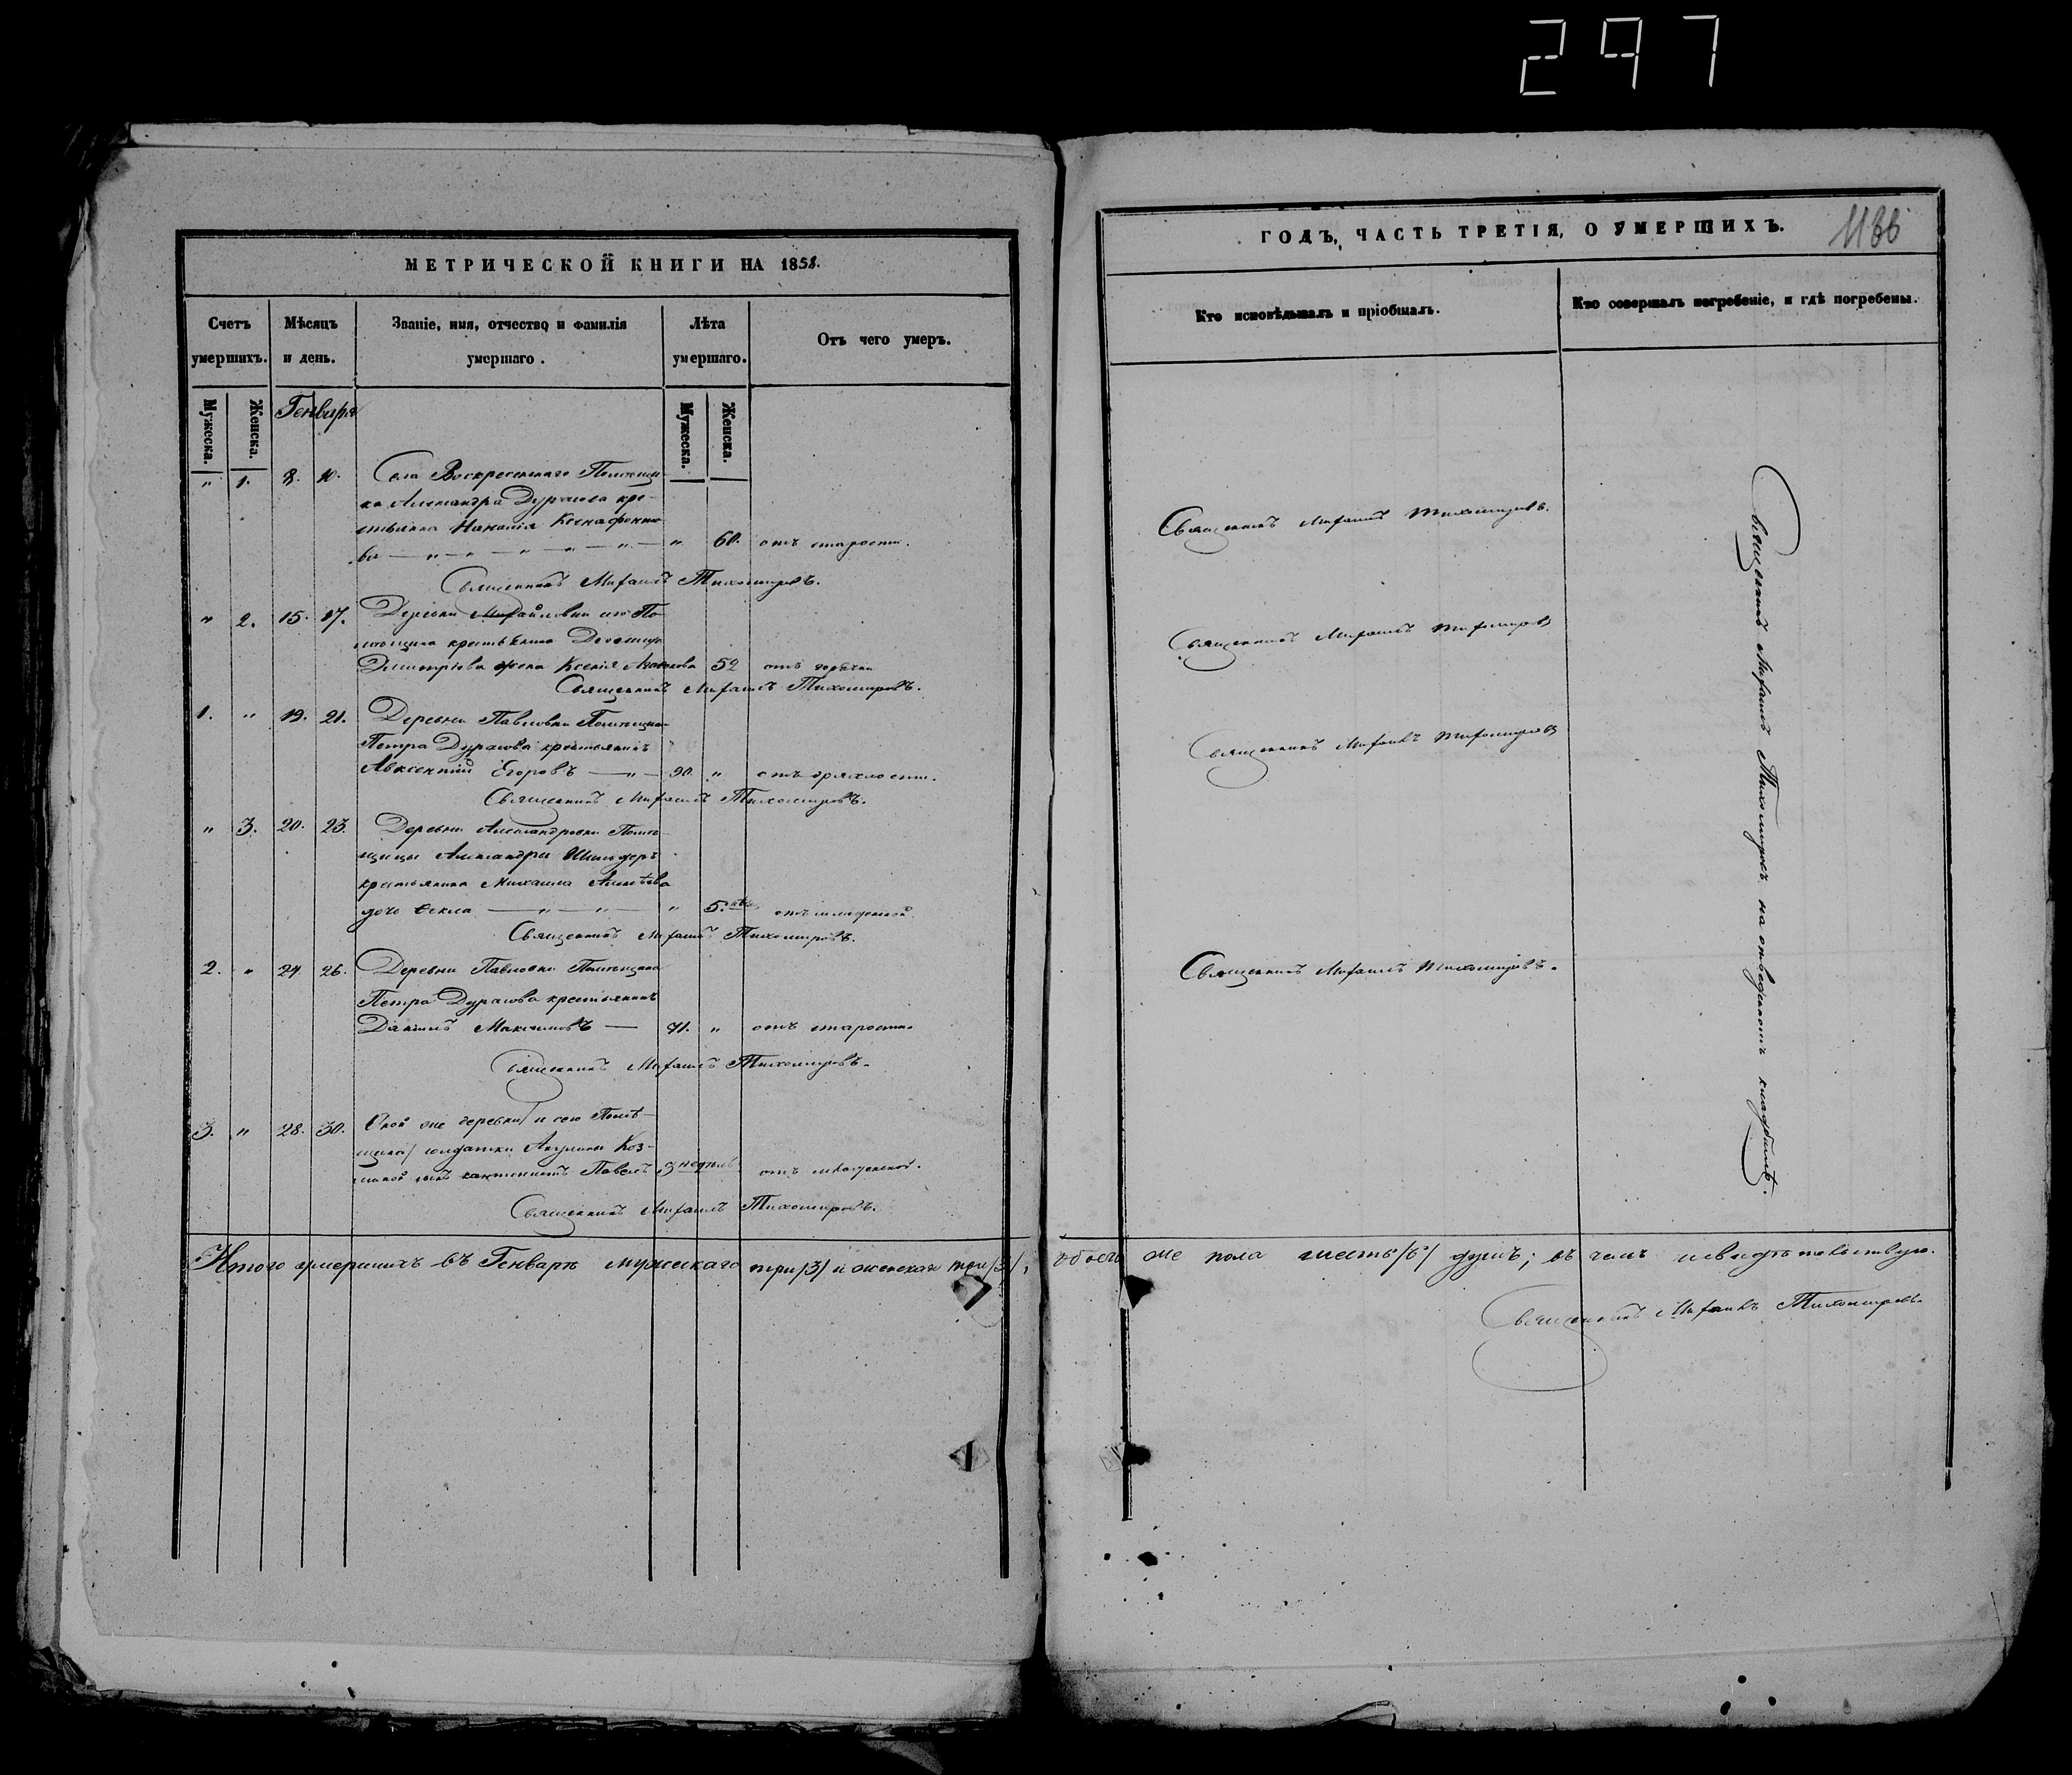 297
МЕТРИЧЕСКОЙ КНИГИ НА 1858.
Счетъ умершихъ.
Мѣсяцъ и день.
Званіе, имя, отчество и фамилія умершаго.
Лѣта умершаго.
Отъ чего умеръ.
Мужеска.
Женска.
Генваря
Мужеска.
Женска.
" 1. 8. 10. Села Воскресенскаго Помѣщи-
ка Александра Дурасова кре-
стьянка Наталія Ксенафонто-
ва — " — " — " — " — " — " 60. отъ старости.
Священникъ Михаилъ Тихомировъ.
" 2. 15. 17. Деревни Михайловки сего По-
мѣщика крестьянина
Димитріева жена Ксенія 52 отъ горячки
Священникъ Михаилъ Тихомировъ.
1. " 19. 21. Деревни Павловки Помѣщика
Петра Дурасова крестьянинъ
Авксентій Егоровъ — " — 90. " отъ дряхлости.
Священникъ Михаилъ Тихомировъ.
" 3. 20. 23. Деревни Александровки Помѣ-
щицы Александры
крестьянина Михаила Алексѣева
дочь Ѳекла — " — " — " 5. отъ младенской
Священникъ Михаилъ Тихомировъ.
2. " 24. 26. Деревни Павловки Помѣщика
Петра Дурасова крестьянинъ
Даніилъ Максимовъ — 71. " отъ старости.
Священникъ Михаилъ Тихомировъ.
3. " 28. 30. Оной же деревни / и сего Помѣ-
щика / солдатки Акулины Коз-
миной сынъ кантонистъ Павелъ 3 недѣль отъ младенской.
Священникъ Михаилъ Тихомировъ.
Итого умершихъ въ Генварѣ мужскаго три /3/ и женскаго три /3/,
ГОДЪ, ЧАСТЬ ТРЕТІЯ, О УМЕРШИХЪ.
Кто исповѣдывалъ и пріобщалъ.
Кто совершалъ погребеніе, и гдѣ погребены.
Священникъ Михаилъ Тихомировъ.
Священникъ Михаилъ Тихомировъ
Священникъ Михаилъ Тихомировъ
Священникъ Михаилъ Тихомировъ.
Священникъ Михаилъ Тихомировъ на отведенномъ кладбищѣ.
обоего же пола шесть /6/ душъ; въ чемъ и свидѣтельствую.
Священникъ Михаилъ Тихомировъ.